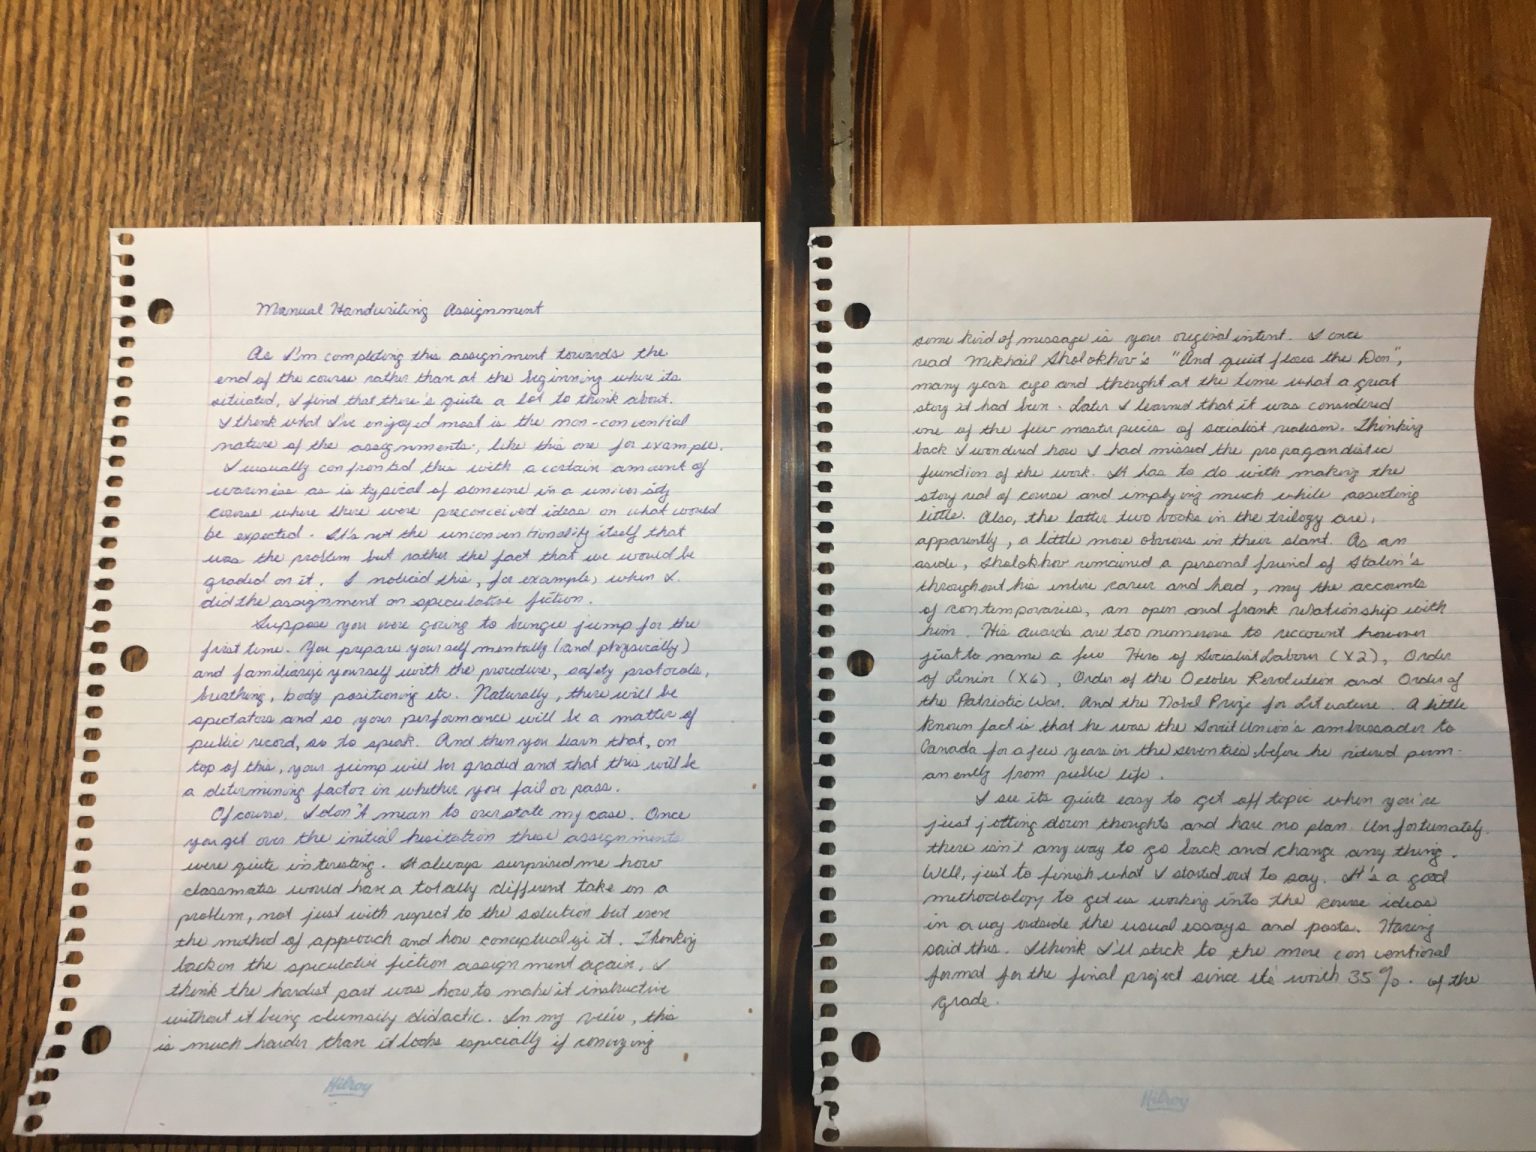 Manual Handwriting Assignment
As I'm completing this assignment towards the
end of the course rather than at the beginning where its
situated, I find that there's quite a lot to think about.
I think what I've enjoyed most is the non-convential
nature of the assignments, like this one for example.
I usually confronted this with a certain amount of
wariness as is typical of someone in a university
course where there were preconceived ideas on what would
be expected. It's not the unconventionality itself that
was the problem but rather the fact that we would be
graded on it. I noticed this, for example, when I
did the assignment on speculative fiction.
Suppose you were going to bungie jump for the
first time. You prepare yourself mentally (and physically)
and familiarize yourself with the procedure, safety protocols,
breathing, body positioning etc. Naturally, there will be
spectators and so your performance will be a matter of
public record, so to speak. And then you learn that, on
top of this, your jump will be graded and that this will be
a determining factor in whether you fail or pass.
Of course, I don't mean to overstate my case. Once
you get over the initial hesitation these assignments
were quite interesting. It always surprised me how
classmates would have a totally different take on a
problem, not just with respect to the solution but even
the method of approach and how conceptualize it. Thinking
back on the speculative fiction assignment again, I
think the hardest part was how to make it instructive
without it being clumsily didactic. In my view, this
is much harder than it looks especially if conveying
Hilroy
some kind of message is your original intent. I once
read Mikhail Sholokhov's "And quiet flows the Don",
many years ago and thought at the time what a great
story it had been. Later I learned that it was considered
one of the few masterpieces of socialist realism. Thinking
back I wondered how I had missed the propagandistic
function of the work. It has to do with making the
story real of course and implying much while asserting
little. Also, the latter two books in the trilogy are,
apparently, a little more obvious in their slant. As an
aside, Sholokhov remained a personal friend of Stalin's
throughout his entire career and had, my the accounts
of contemporaries, an open and frank relationship with
him. His awards are too numerous to recount however
just to name a few Hero of Socialist Labour (X2), Order
of Lenin (X6), Order of the October Revolution and Order of
the Patriotic War. And the Nobel Prize for Literature. A little
known fact is that he was the Soviet Union's ambassador to
Canada for a few years in the seventies before he retired perm-
anently from public life.
I see its quite easy to get off topic when you're
just jotting down thoughts and have no plan. Unfortunately,
there isn't any way to go back and change any thing.
Well, just to finish what I started out to say. It's a good
methodology to get us working into the course ideas
in a way outside the usual essays and posts. Having
said this. I think I'll stick to the more conventional
format for the final project since its worth 35%. of the
grade.
Hilroy